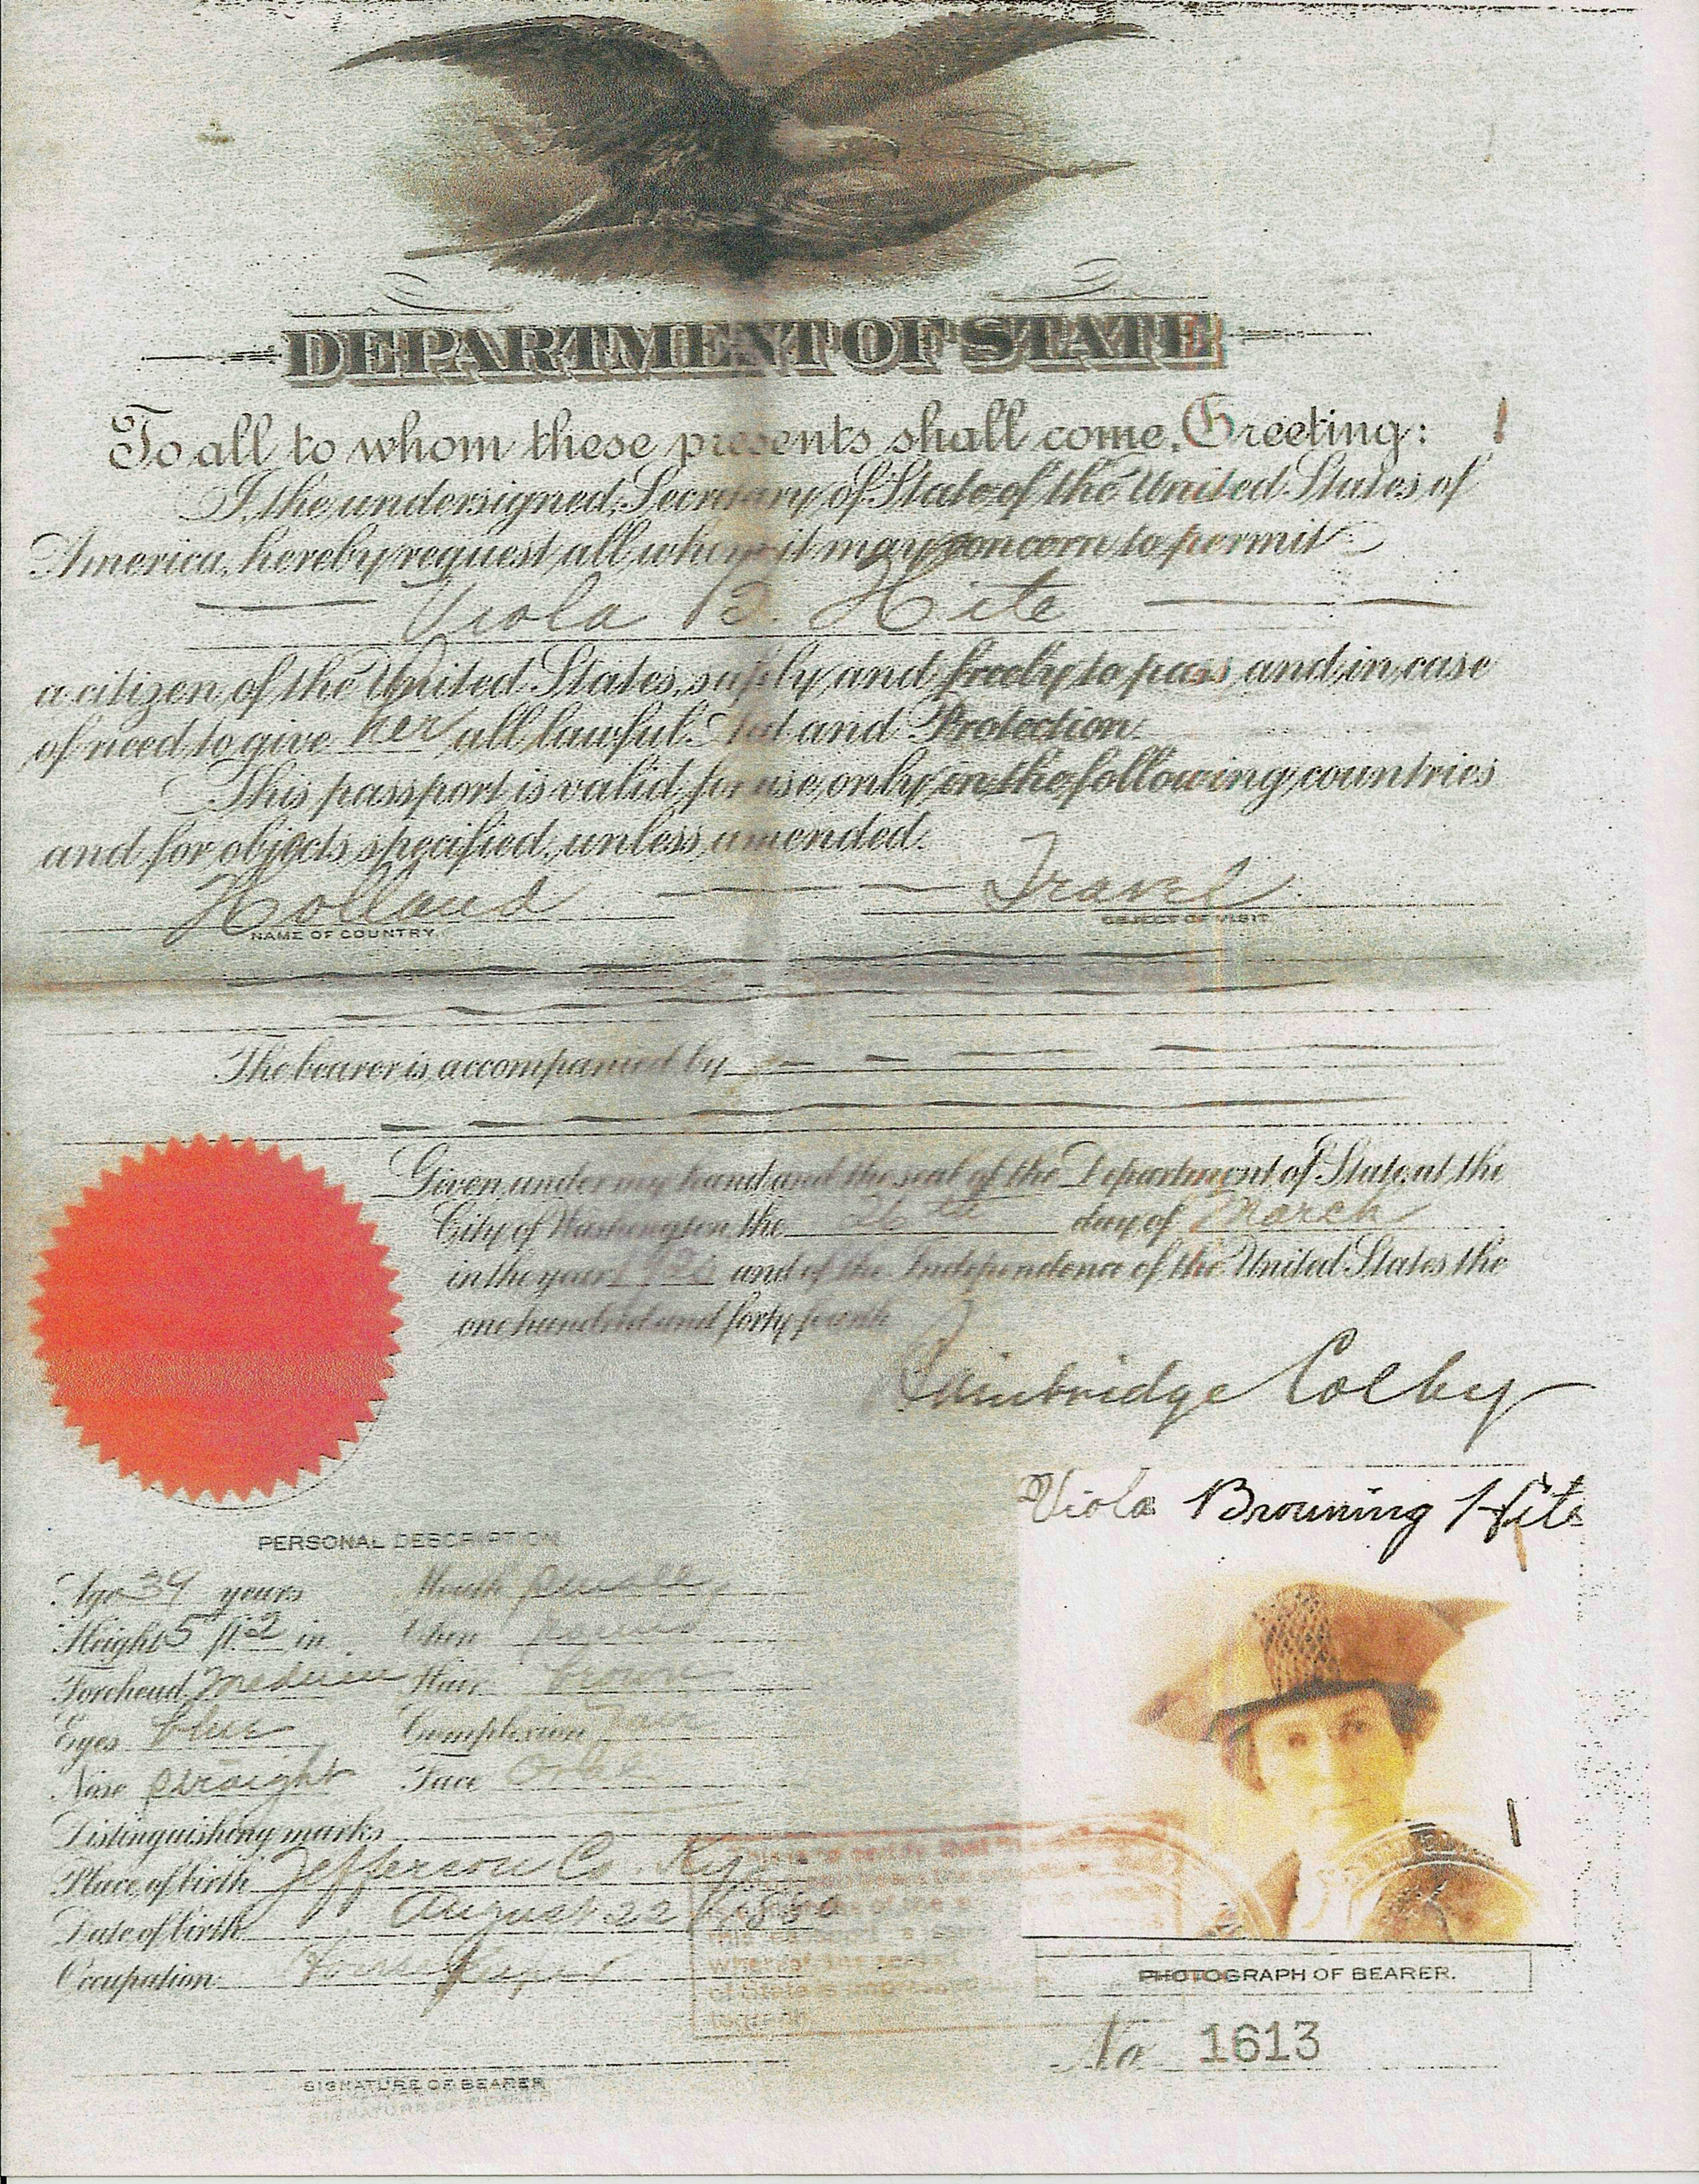 DEPARTMENT OF STATE
To all to whom these presents shall come, Greeting:
I, the undersigned, Secretary of State of the United States of
America, hereby request all whom it may concern to permit
Viola B. Hite
a citizen of the United States, safely and freely to pass, and in case
of need to give her all lawful Aid and Protection.
This passport is valid for use only in the following countries
and for objects specified, unless amended.
Holland Travel
NAME OF COUNTRY. OBJECT OF VISIT.
The bearer is accompanied by
Given under my hand and the seal of the Department of State at the
City of Washington, the 26th day of March
in the year 1920 and of the Independence of the United States the
one hundred and forty fourth
Bainbridge Colby
Viola Browning Hite
PERSONAL DESCRIPTION
Age 39 years Mouth small
Height 5 ft. 2 in. Chin round
Forehead medium Hair brown
Eyes blue Complexion fair
Nose straight Face Oval
Distinguishing marks
Place of birth Jefferson Co. Ky
Date of birth August 22 1880
Occupation Housekeeper
This is to certify that
PHOTOGRAPH OF BEARER.
No 1613
SIGNATURE OF BEARER